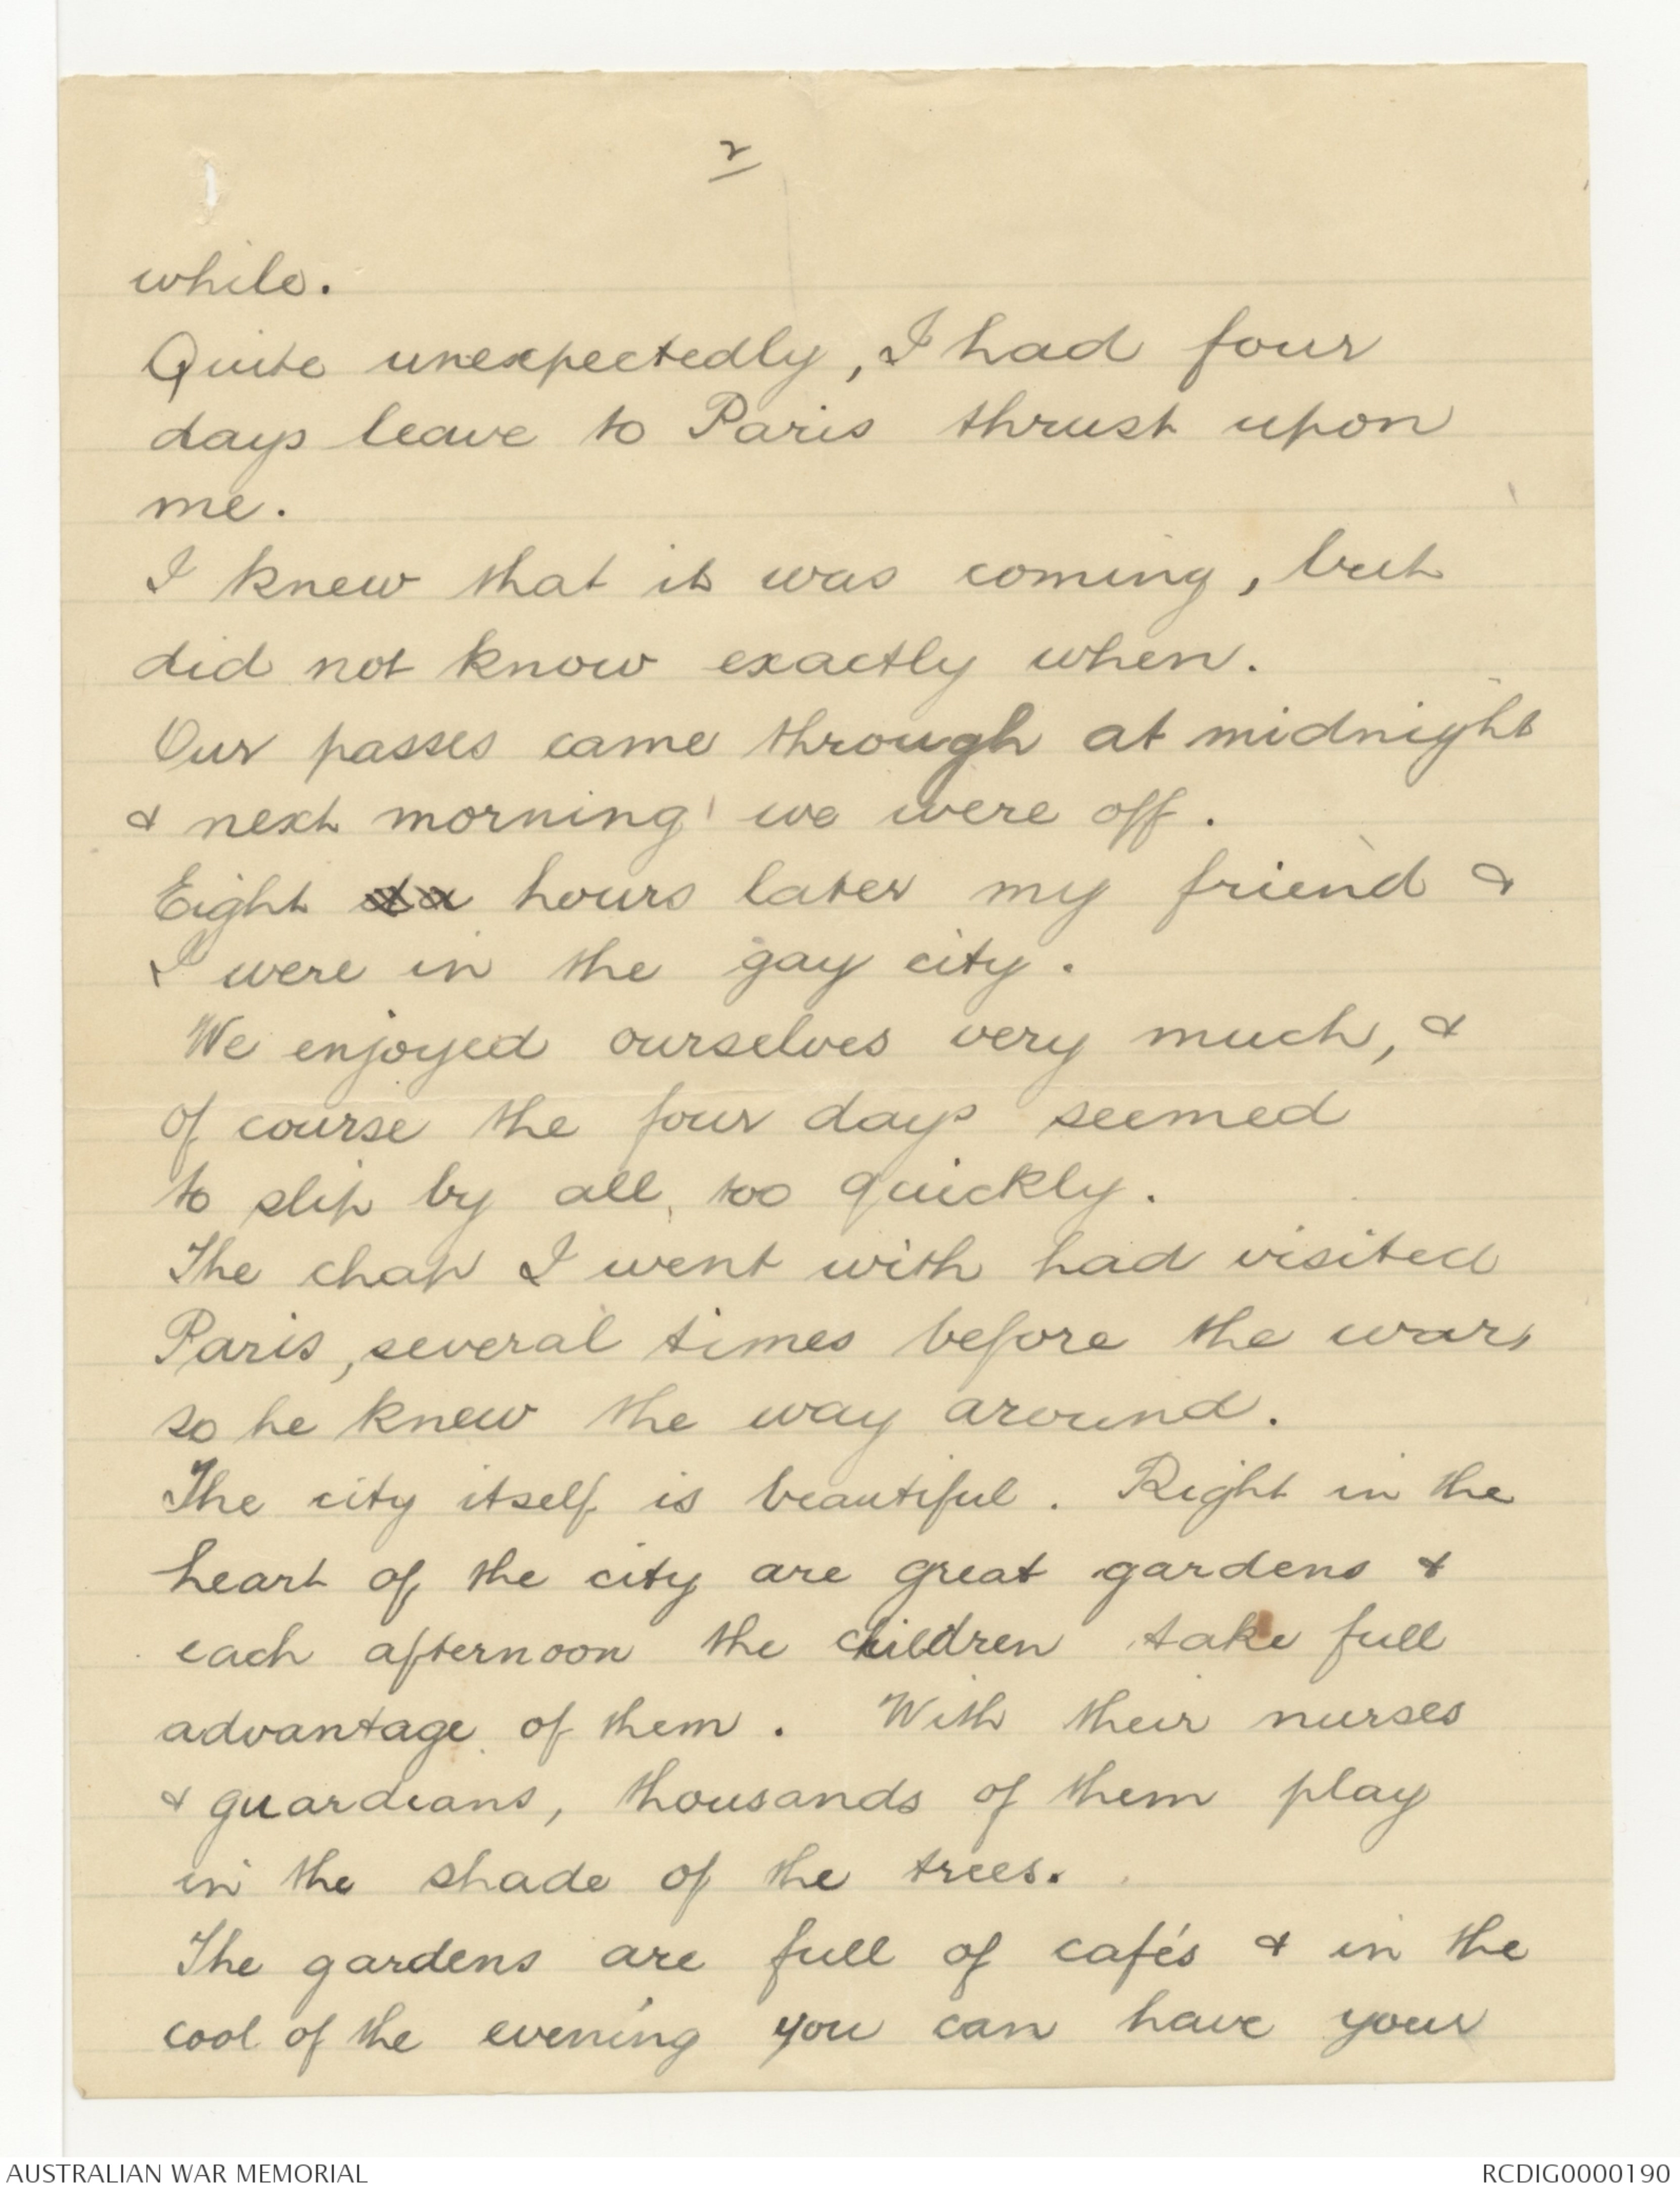 2
while.
Quite unexpectedly, I had four
days leave to Paris thrust upon
me.
I knew that it was coming, but
did not know exactly when.
Our passes came through at midnight
& next morning we were off.
Eight hours later my friend &
I were in the gay city.
We enjoyed ourselves very much, &
of course the four days seemed
to slip by all too quickly.
The chap I went with had visited
Paris, several times before the war,
so he knew the way around.
The city itself is beautiful. Right in the
heart of the city are great gardens &
each afternoon the children take full
advantage of them. With their nurses
& guardians, thousands of them play
in the shade of the trees.
The gardens are full of cafés & in the
cool of the evening you can have your
AUSTRALIAN WAR MEMORIAL
RCDIG0000190